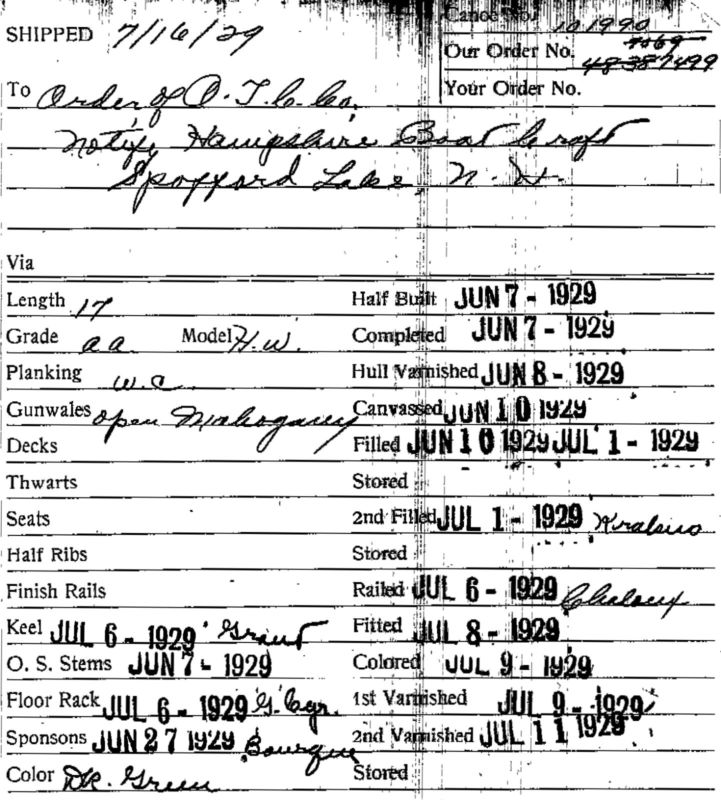 Canoe No. 101990
SHIPPED 7/16/29
Our Order No. 7469
48387499
Your Order No.
To Order of O. T. C. Co.
Notify Hampshire Boat Craft
Spofford Lake, N. H.
Via
Length 17 Half Built JUN 7 - 1929
Grade AA Model H.W. Completed JUN 7 - 1929
Planking W.C Hull Varnished JUN 8 - 1929
Gunwales open Mahogany Canvassed JUN 10 1929
Decks Filled JUN 10 1929 JUL 1 - 1929
Thwarts Stored
Seats 2nd Filled JUL 1 - 1929
Half Ribs Stored
Finish Rails Railed JUL 6 - 1929
Keel JUL 6 - 1929 Grant Fitted JUL 8 - 1929
O. S. Stems JUN 7 - 1929 Colored JUL 9 - 1929
Floor Rack JUL 6 - 1929 G. Cyr. 1st Varnished JUL 9 - 1929
Sponsons JUN 27 1929 Bourque 2nd Varnished JUL 11 1929
Color Dk. Green Stored